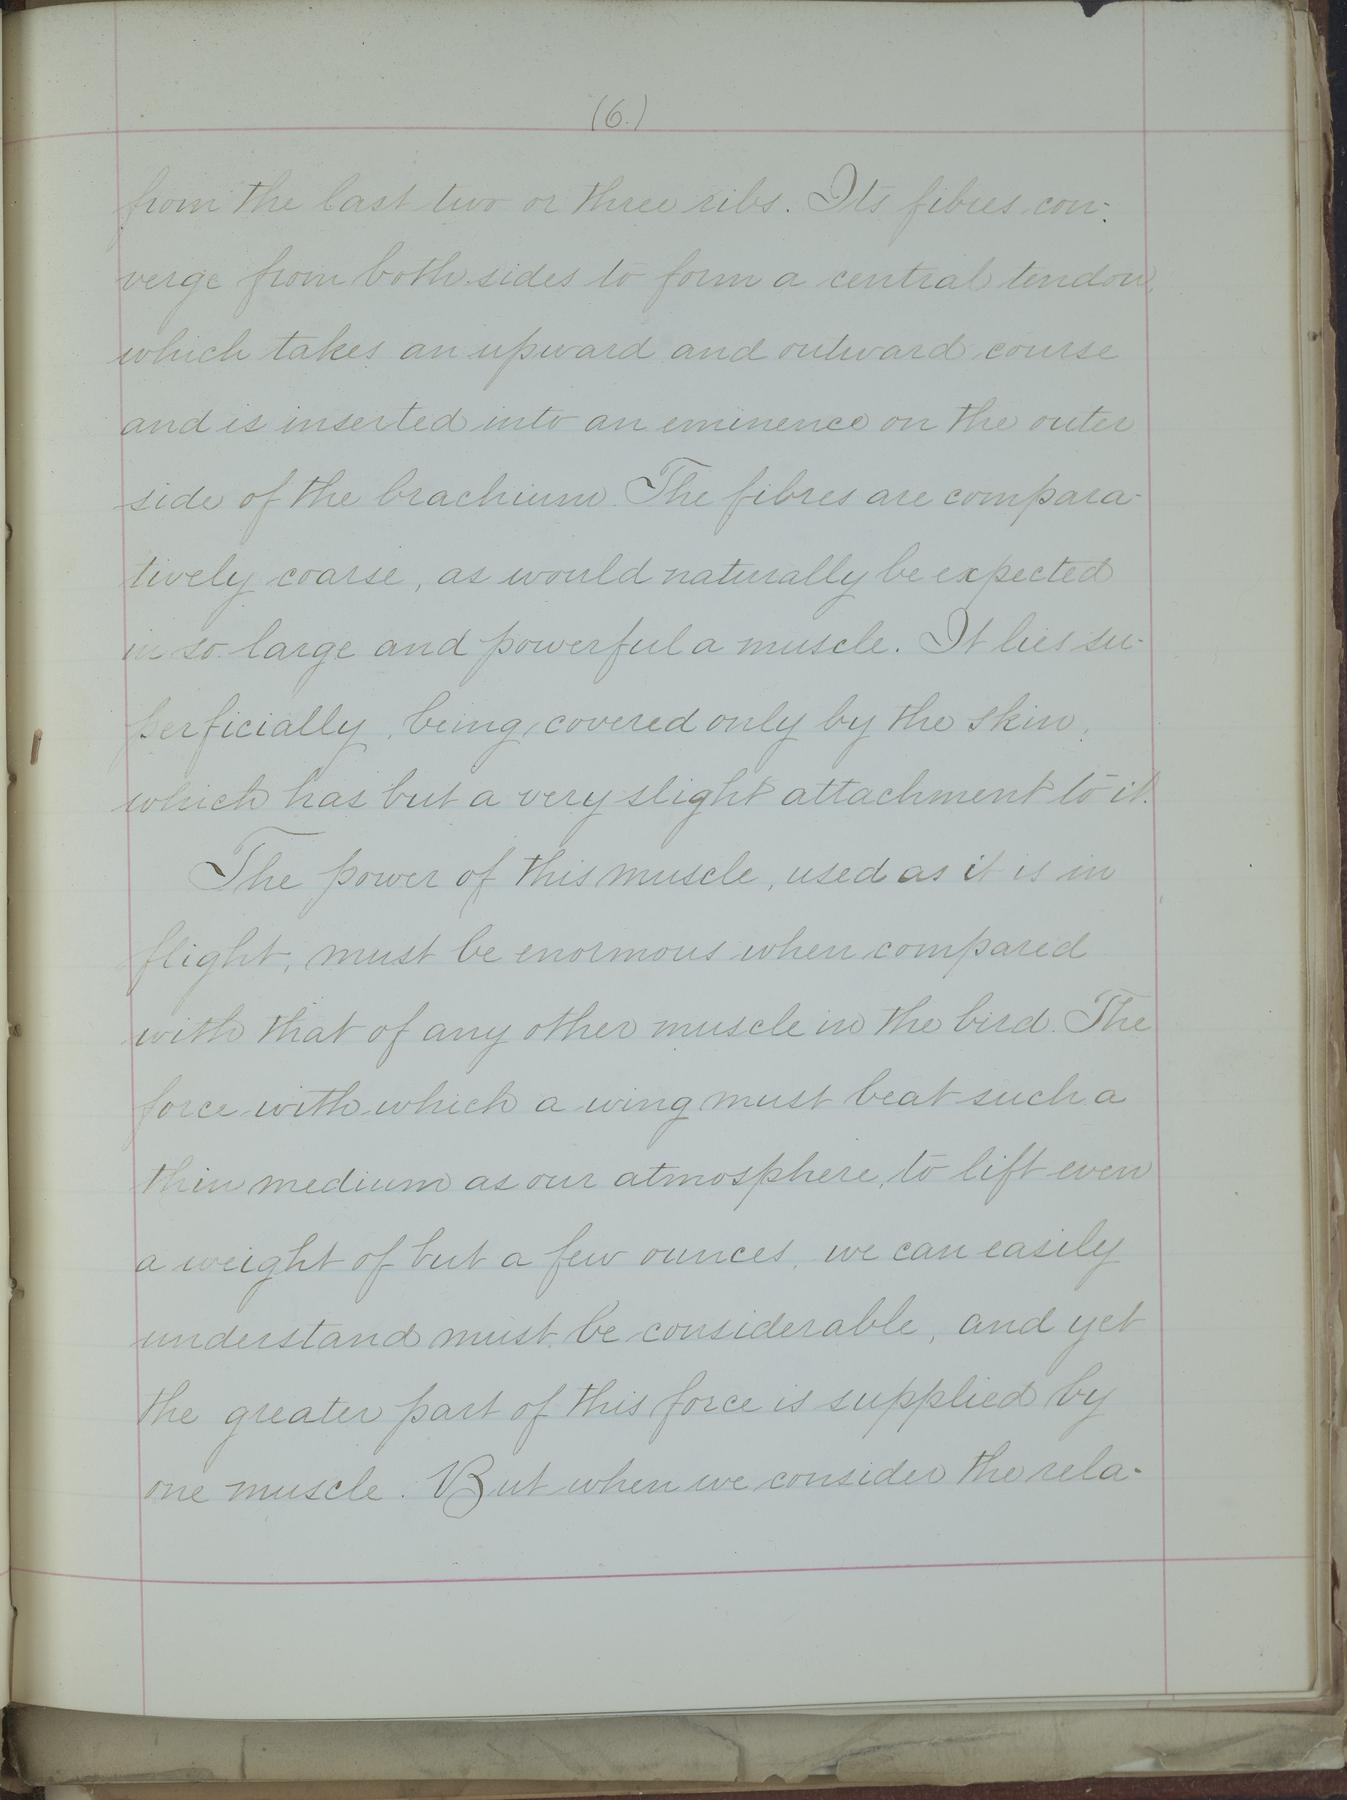 (6.)
from the last two or three ribs. Its fibres con-
verge from both sides to form a central tendon,
which takes an upward and outward course
and is inserted into an eminence on the outer
side of the brachium. The fibres are compara-
tively coarse, as would naturally be expected
in so large and powerful a muscle. It lies su-
perficially, being covered only by the skin,
which has but a very slight attachment to it.
The power of this muscle, used as it is in
flight, must be enormous when compared
with that of any other muscle in the bird. The
force with which a wing must beat such a
thin medium as our atmosphere, to lift even
a weight of but a few ounces, we can easily
understand must be considerable, and yet
the greater part of this force is supplied by
one muscle. But when we consider the rela-